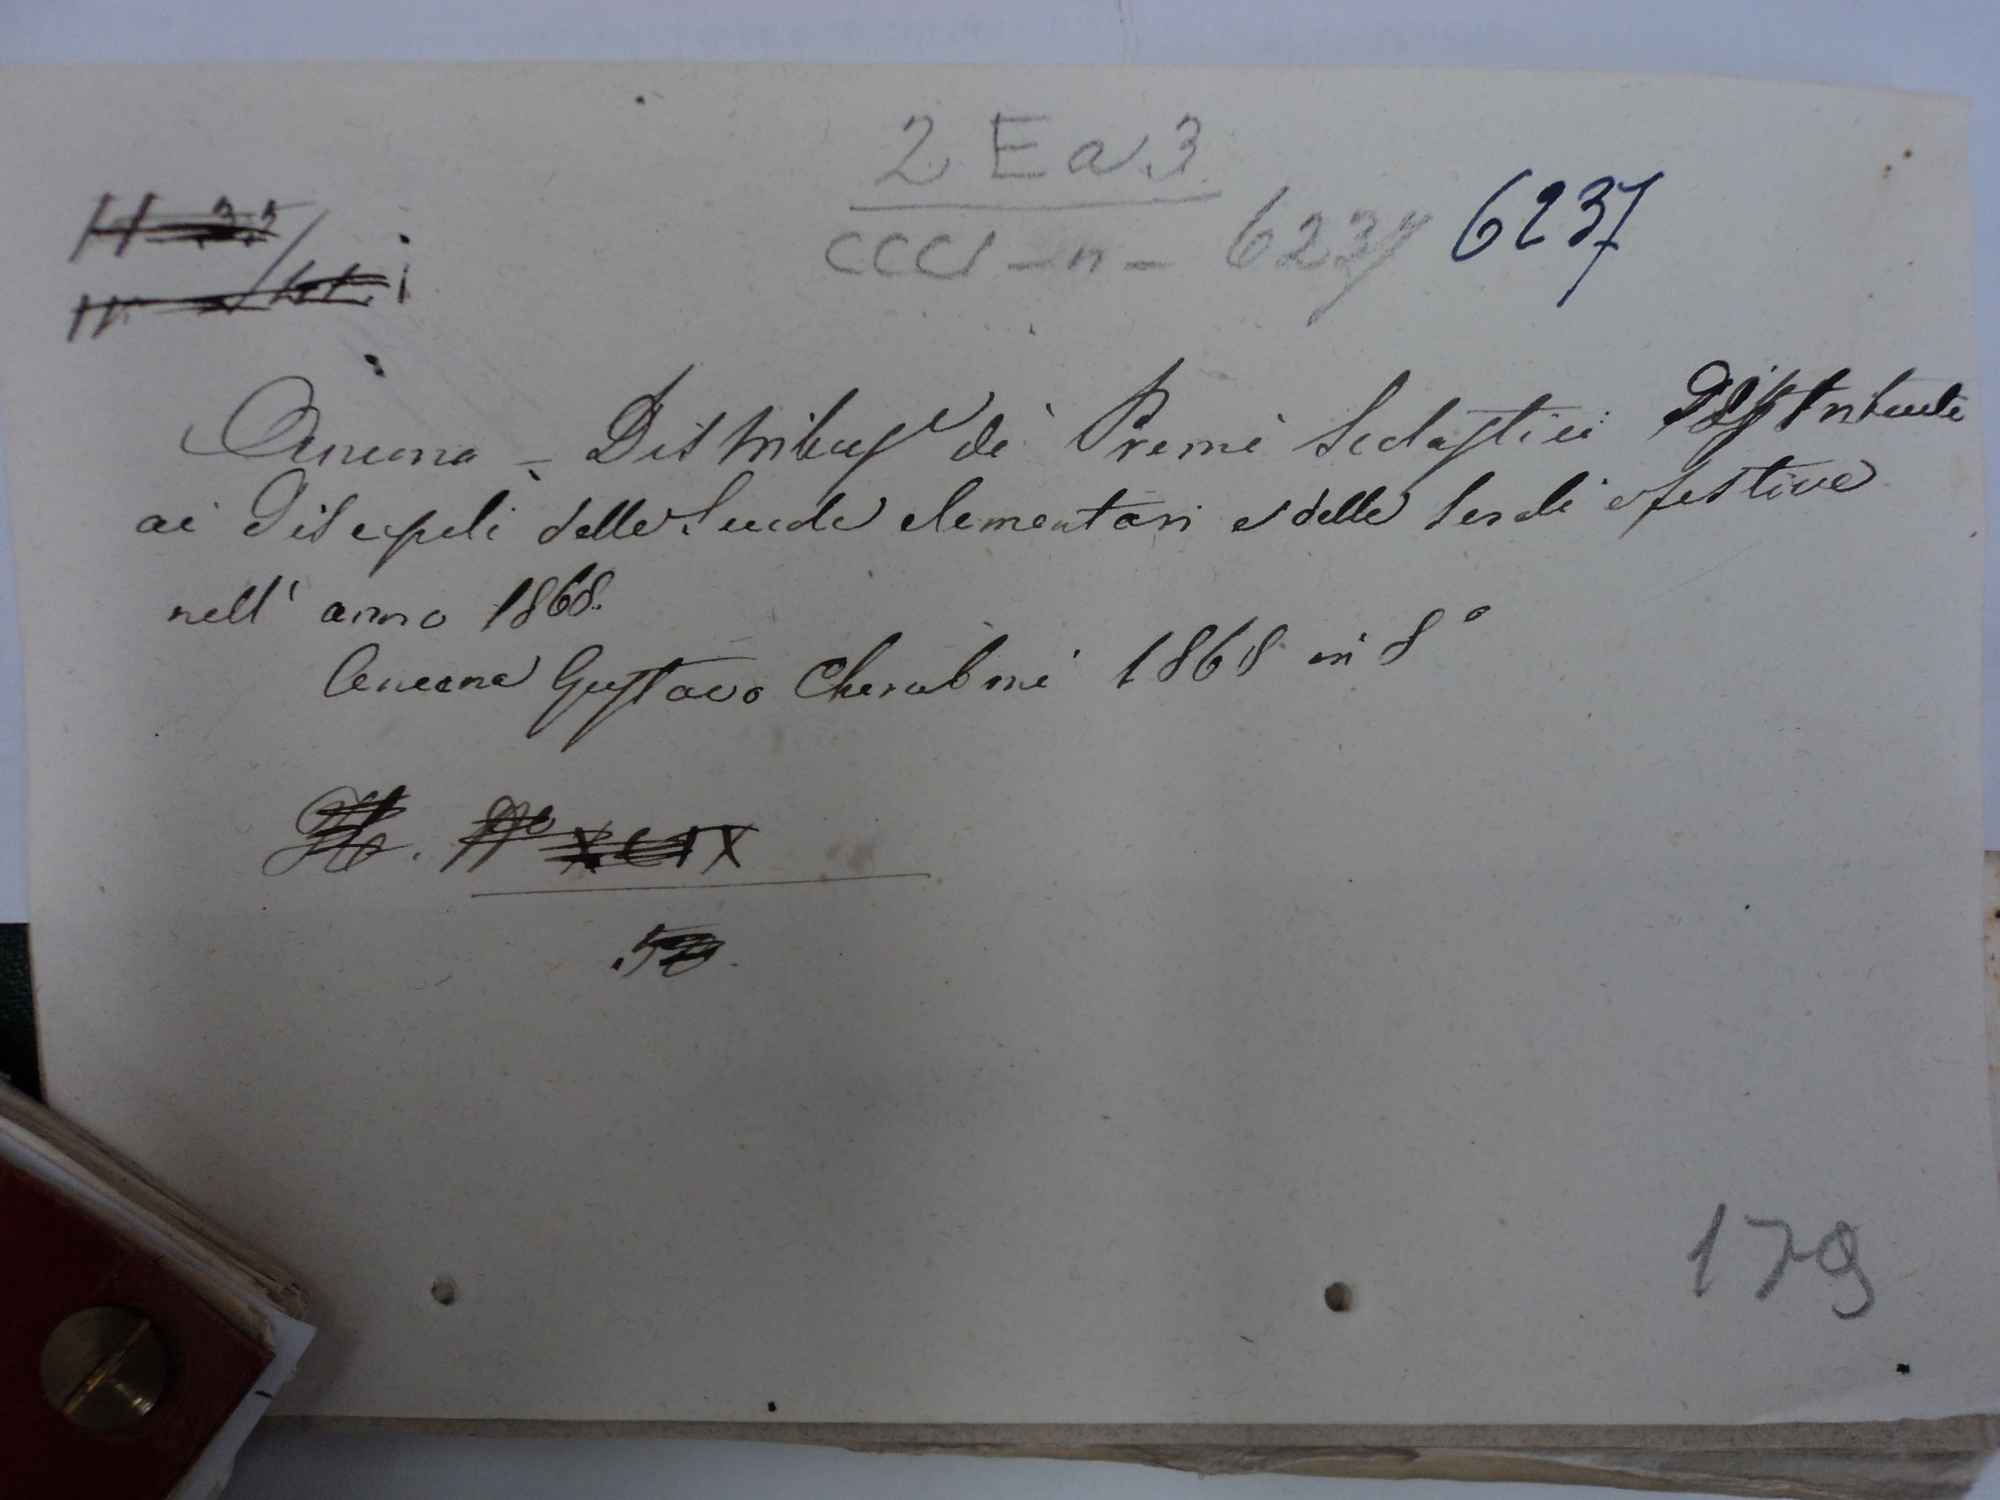 2 Ea 3
CCCV - n - 6237 6237
Ancona - Distribuz.e di Premi Scolastici Distribuite
ai Discepoli delle Scuole elementari e delle Serali e festive
nell' anno 1868.
Ancona Gustavo Cherubini 1868 in 8°
XCIX
50
179